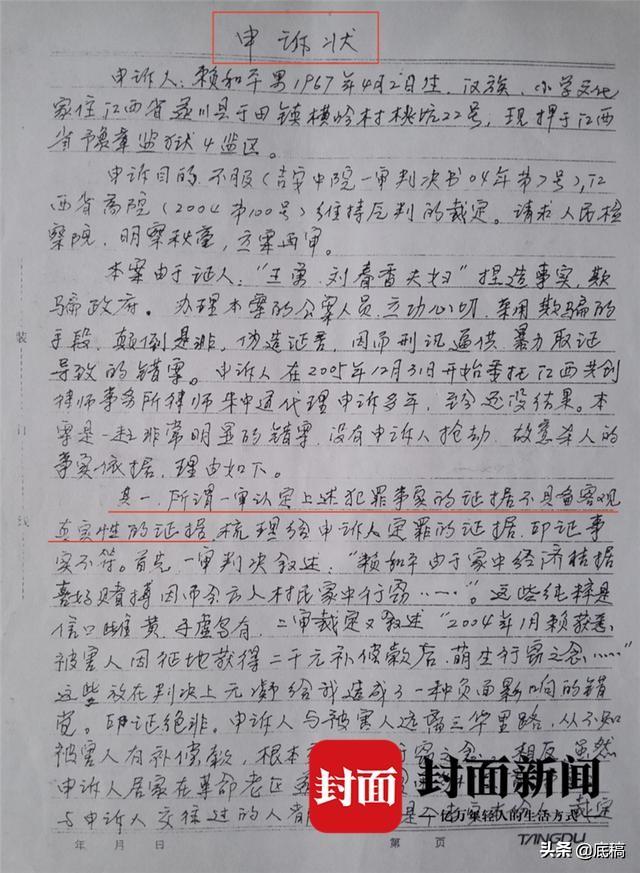 申诉状
申诉人:赖和平 男 1967年4月2日生,汉族,小学文化
家住江西省遂川县于田镇横岭村桃坑22号,现押于江西
省豫章监狱4监区。
申诉目的,不服(吉安中院一审判决书04年第7号),江
西省高院(2004第100号)维持原判的裁定。请求人民检
察院,明察秋毫,立案再审。
本案由于证人:"王勇、刘春香夫妇"捏造事实,欺
骗政府。办理本案的公安人员,立功心切,采用欺骗的
手段,颠倒是非,伪造证言,因而刑讯逼供,暴力取证
导致的错案。申诉人在2005年12月31日开始委托江西共创
律师事务所律师朱中道代理申诉多年,至今还没结果。本
案是一起非常明显的错案,没有申诉人抢劫、故意杀人的
事实依据,理由如下。
其一,所谓一审认定上述犯罪事实的证据不具备客观
真实性的证据,梳理给申诉人定罪的证据,印证事
实不符。首先,一审判决叙述:"赖和平由于家中经济桔据
喜好赌搏因而多次入村民家中行窃……"。这些纯粹是
信口雌黄,子虚乌有,二审裁定又叙述"2004年1月赖获悉
被害人因征地获得二千元补偿款后,萌生行窃之念……"
这些放在判决上无凝给我造成了一种负面影响的错
觉。印证绝非。申诉人与被害人远离三华里路,从不知
被害人有补偿款,根本 行窃之念 相反虽然
申诉人居家在革命老区
与申诉人交往过的人都 是个 裁定
装
订
线
年 月 日 第 页 TANGDU
封面 封面新闻
亿万年轻人的生活方式
头条 @底稿